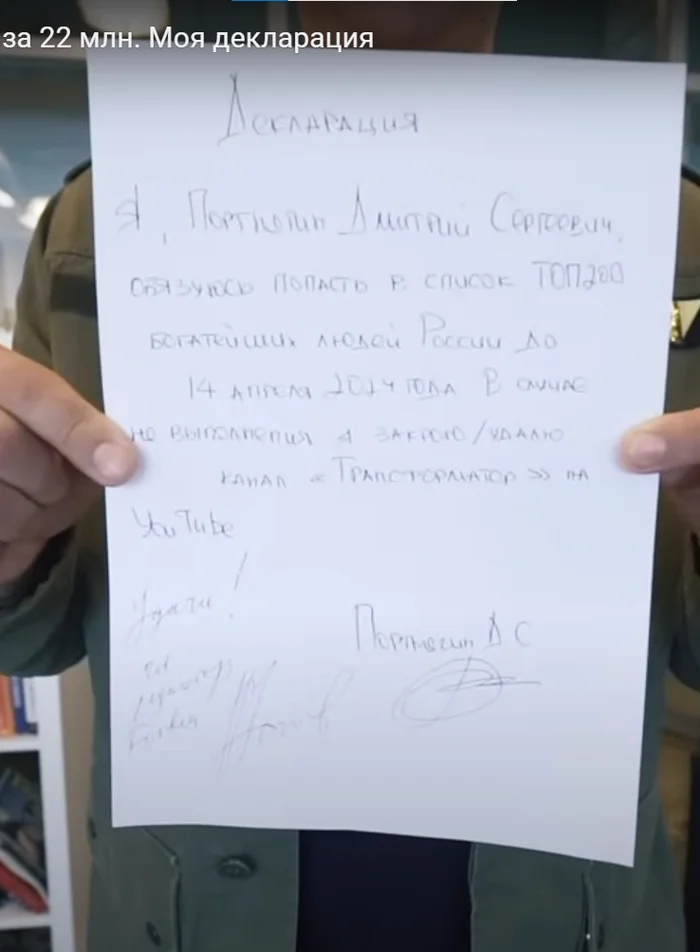 за 22 млн. Моя декларация
Декларация
Я, Портнягин Дмитрий Сергеевич,
обязуюсь попасть в список ТОП200
богатейших людей России до
14 апреля 2024 года В случае
не выполнения я закрою/удалю
канал «Трансформатор» на
YouTube
Удачи!
Портнягин Д С